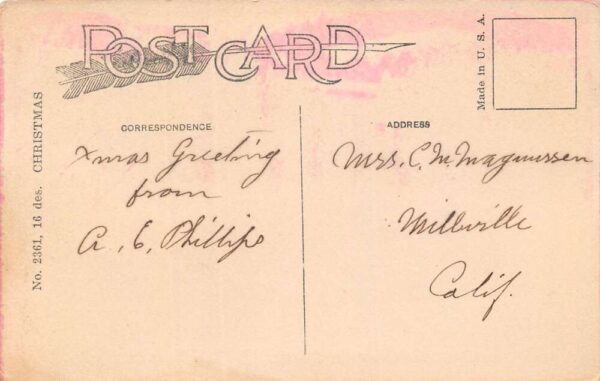 POST CARD
Made in U. S. A.
No. 2361, 16 des. CHRISTMAS
CORRESPONDENCE
Xmas Greeting
from
A. E. Phillips
ADDRESS
Mrs. C. M. Magnussen
Millville
Calif.